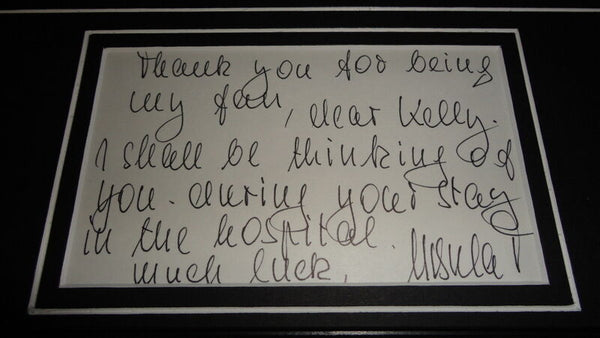 Thank you for being
my fan, dear Kelly.
I shall be thinking of
you. during your stay
in the hospital.
much luck, Ursula